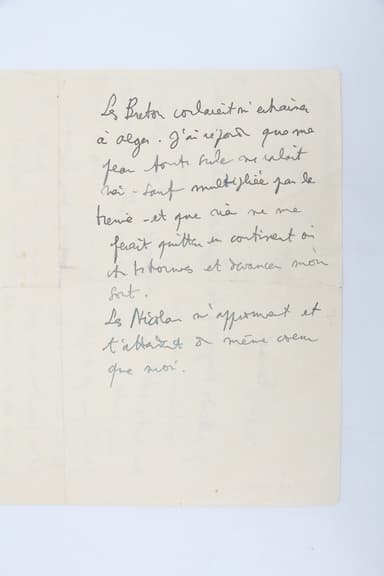 Les Breton voulaient m'entraîner
à Alger. J'ai répondu que ma
peau toute seule ne valait
rien - sauf multipliée par la
tienne - et que rien ne me
ferait quitter un continent où
tu te trouves et devancer mon
sort.
Les Nicolas m'approuvent et
t'attendent du même cœur
que moi.